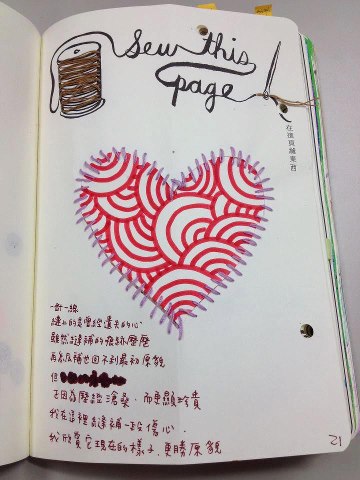 Sew this
page
在這頁縫東西
一針一線
縫的是曾經遺失的心
雖然縫補的痕跡歷歷
再怎麼補也回不到最初原貌
但
正因為歷經滄桑,而更顯珍貴
我在這裡縫補一段傷心
我欣賞它現在的樣子,更勝原貌
21